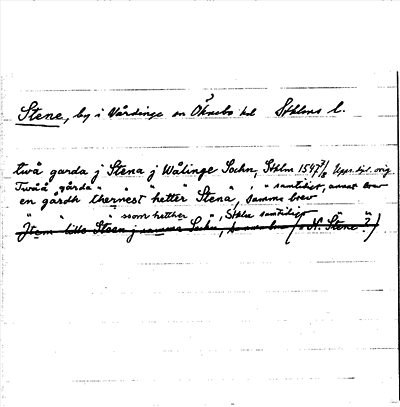 Stene, by i Vårdinge sn Öknebo hd Sthlms l.
twå garda j Stena j Wålinge Sochn, Sthlm 1547 7/8 Upps. bibl. orig.
Twåå gårda " " " " " " " samtidigt, annat brev
en gårdh thernest hetter Stena, samma brev
" " " som hetther ", Sthlm samtidigt
Jtem litle Steen j samma Sochn, (N. Stene?)